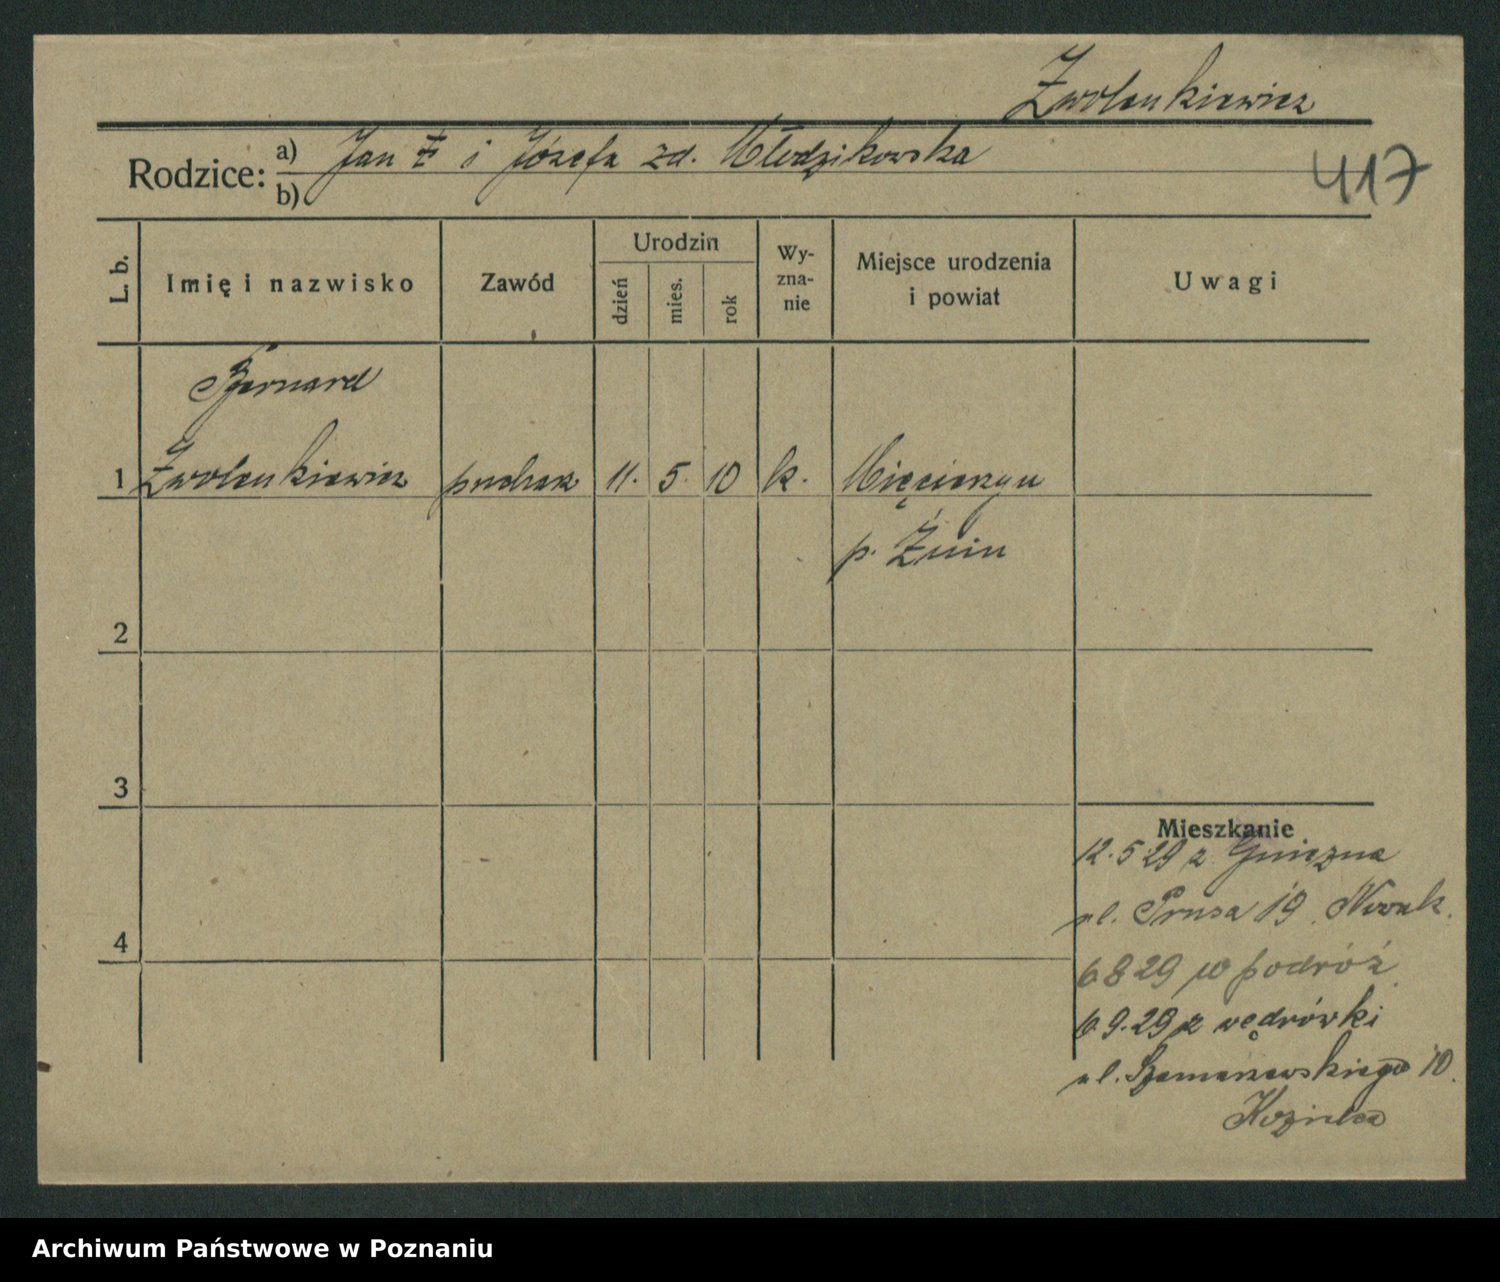 Zwolenkiewicz
417
Rodzice: a) Jan Z i Józefa zd. Młodzikowska
b)
L. b. Imię i nazwisko Zawód Urodzin dzień mies. rok Wy-zna-nie Miejsce urodzenia i powiat Uwagi
Bernard
1 Zwolenkiewicz 11. 5. 10 k. Mięcierzyn
p. Żnin
2
3
Mieszkanie
12.5.29 z Gniezna
ul. Prusa 19 Nowak.
4
6 8 29 w podróż
6 9.29 z wędrówki
ul. 10.
Archiwum Państwowe w Poznaniu